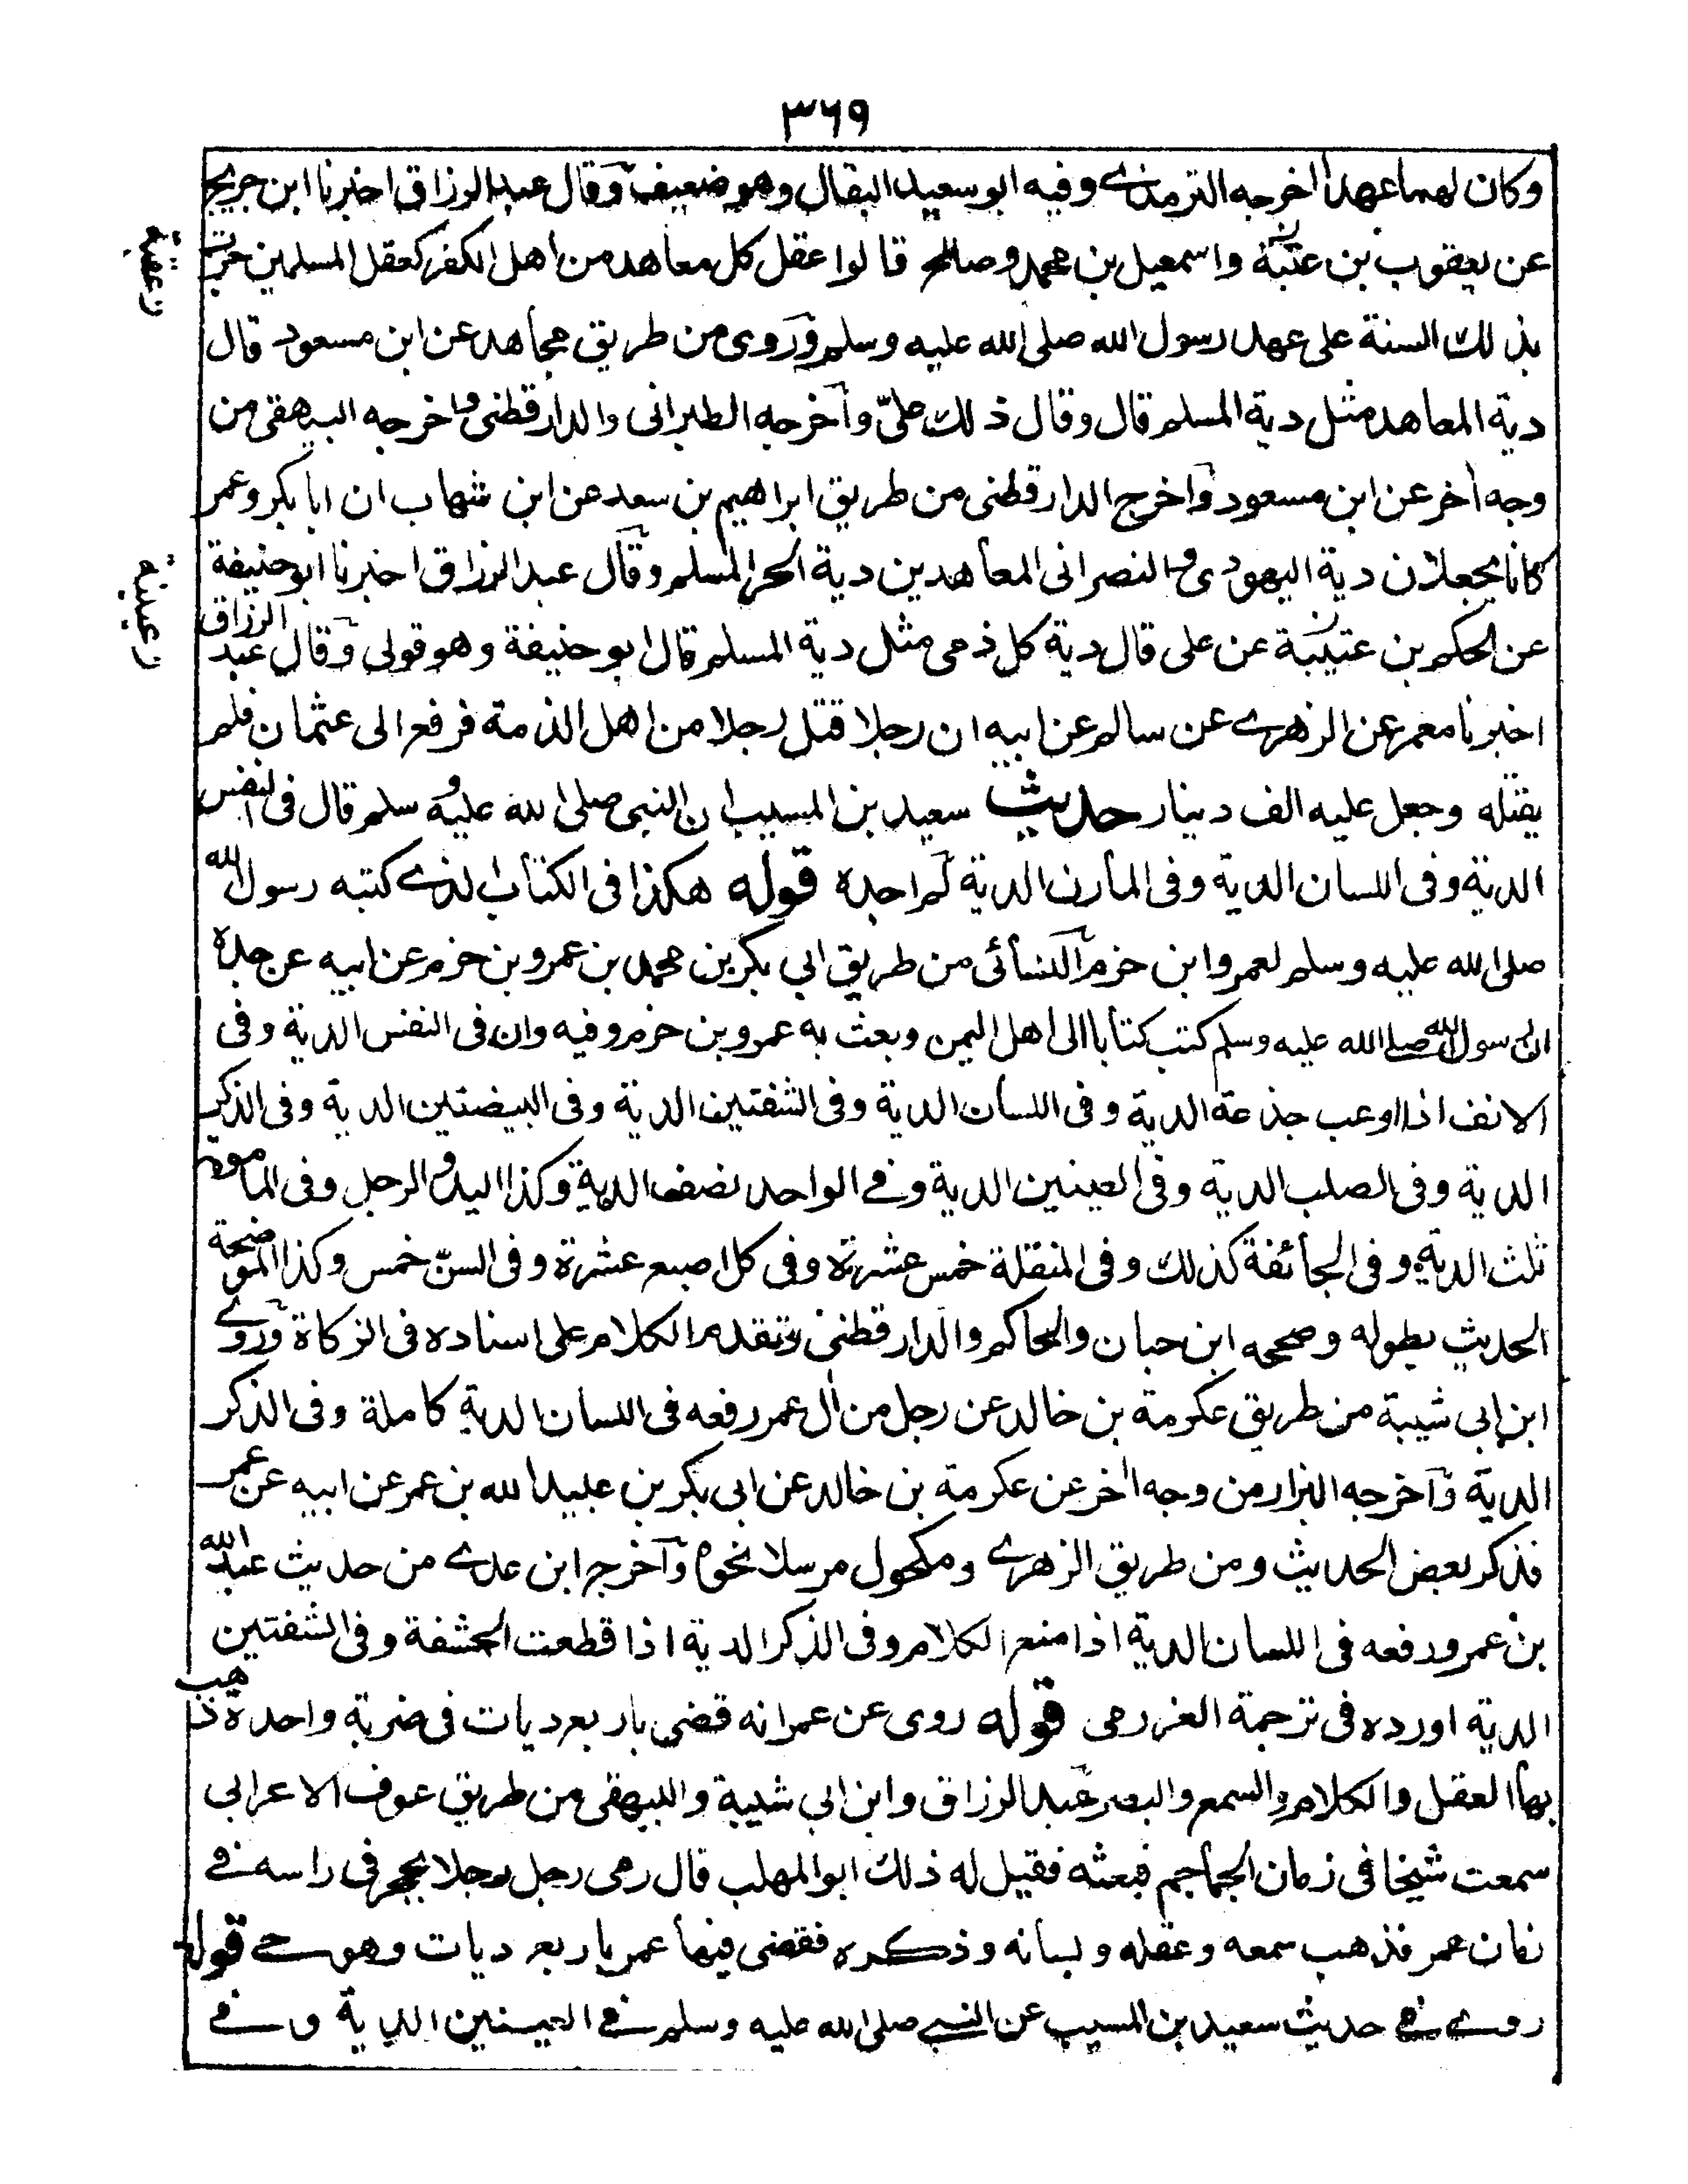 ۳۶۹
وكان لهما عهد اخرجه الترمذي وفيه ابو سعيد البقال وهو ضعيف وقال عبد الرزاق اخبرنا ابن جريج
عن يعقوب بن عتبة واسمعيل بن محمد وصالح قالوا عقل كل معاهد من اهل الكفر كعقل المسلمين جرت
بذلك السنة على عهد رسول الله صلى الله عليه وسلم وروى من طريق مجاهد عن ابن مسعود قال
دية المعاهد مثل دية المسلم قال وقال ذلك علي واخرجه الطبرانى والدارقطنى واخرجه البيهقى من
وجه اخر عن ابن مسعود واخرج الدارقطنى من طريق ابراهيم بن سعد عن ابن شهاب ان ابا بكر وعمر
كانا يجعلان دية اليهودى والنصرانى المعاهدين دية الحر المسلم وقال عبد الرزاق اخبرنا ابو حنيفة
عن الحكم بن عتيبة عن على قال دية كل ذمى مثل دية المسلم قال ابو حنيفة وهو قولى وقال عبد الرزاق
اخبرنا معمر عن الزهري عن سالم عن ابيه ان رجلا قتل رجلا من اهل الذمة فرفع الى عثمان فلم
يقتله وجعل عليه الف دينار حديث سعيد بن المسيب ان النبى صلى الله عليه وسلم قال فى النفس
الدية وفى اللسان الدية وفى المارن الدية لم اجده قوله هكذا فى الكتاب الذي كتبه رسول الله
صلى الله عليه وسلم لعمرو ابن حزم النسائى من طريق ابي بكر بن محمد بن عمرو بن حزم عن ابيه عن جده
ان رسول الله صلى الله عليه وسلم كتب كتابا الى اهل اليمن وبعث به عمرو بن حزم وفيه وان فى النفس الدية وفى
الانف اذا اوعب جذعة الدية وفى اللسان الدية وفى الشفتين الدية وفى البيضتين الدية وفى الذكر
الدية وفى الصلب الدية وفى العينين الدية وفي الواحد نصف الدية وكذا اليد والرجل وفى المامومة
ثلث الدية وفى الجائفة كذلك وفى المنقلة خمس عشرة وفى كل اصبع عشرة وفى السن خمس وكذا الموضحة
الحديث بطوله وصححه ابن حبان والحاكم والدارقطنى وتقدم الكلام على اسناده فى الزكاة وروي
ابن ابى شيبة من طريق عكرمة بن خالد عن رجل من آل عمر رفعه فى اللسان الدية كاملة وفى الذكر
الدية واخرجه البزار من وجه اخر عن عكرمة بن خالد عن ابى بكر بن عبيد الله بن عمر عن ابيه عن عمر
فذكر بعض الحديث ومن طريق الزهري ومكحول مرسلا نحوه واخرج ابن عدي من حديث عبد الله
بن عمرو رفعه فى اللسان الدية اذا منع الكلام وفى الذكر الدية اذا قطعت الحشفة وفى الشفتين
الدية اورده فى ترجمة العزرمى قوله روى عن عمر انه قضى باربع ديات فى ضربة واحدة ذهب
بها العقل والكلام والسمع والبصر عبد الرزاق وابن ابى شيبة والبيهقى من طريق عوف الاعرابى
سمعت شيخا فى زمان الجماجم فبعثه فقيل له ذلك ابو المهلب قال رمى رجل رجلا بحجر فى راسه في
زمان عمر فذهب سمعه وعقله ولسانه وذكره فقضى فيها عمر باربع ديات وهو حي قوله
روي في حديث سعيد بن المسيب عن النبي صلى الله عليه وسلم في العينين الدية وفي
ن عقبة
ن عيينة